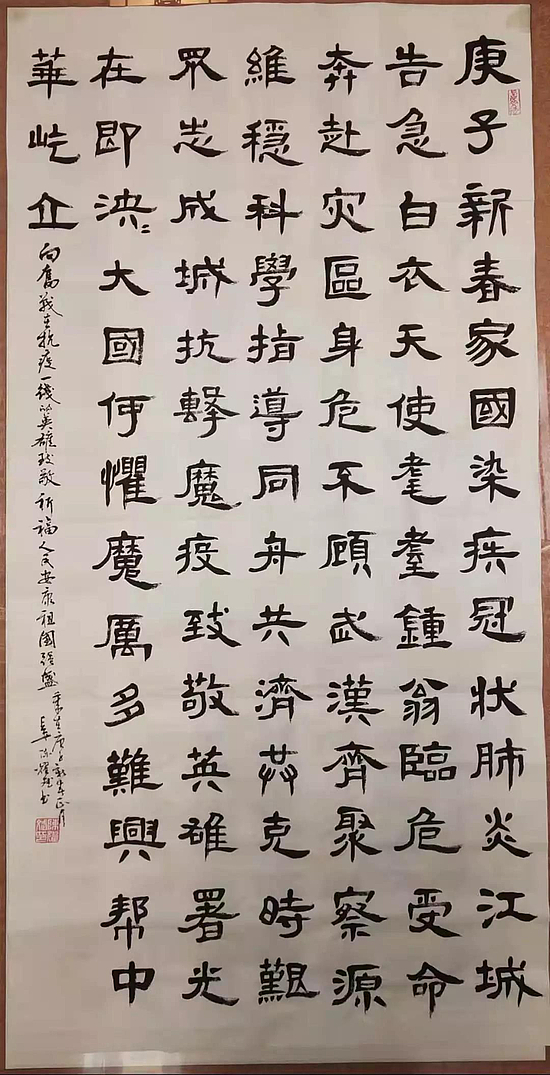 庚子新春家國染疾冠状肺炎江城
告急白衣天使耄耋鍾翁臨危受命
奔赴灾區身危不顧武漢齊聚察源
維穩科學指導同舟共濟共克時艱
眾志成城抗擊魔疫致敬英雄署光
在即泱〻大國何懼魔厲多難興帮中
華屹立
向奮戰在抗疫一綫的英雄致敬祈福人民安康祖國强盛